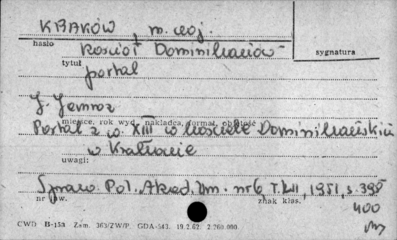 KRAKÓW, m. woj.
hasło
Kościół Dominikanów -
sygnatura
tytuł
portal
J. Jamroz
miejsce, rok wyd., nakładca, format, objętość
Portal z w. XIII w kościele Dominikańskim
w Krakowie
uwagi:
Spraw. Pol. Akad. Um. nr 6 T. LII, 1951, s. 398
nr inw.
znak klas.
400
CWD B-153 Zam. 363/ZW/P. GDA-541. 19.2.62. 2.700.000